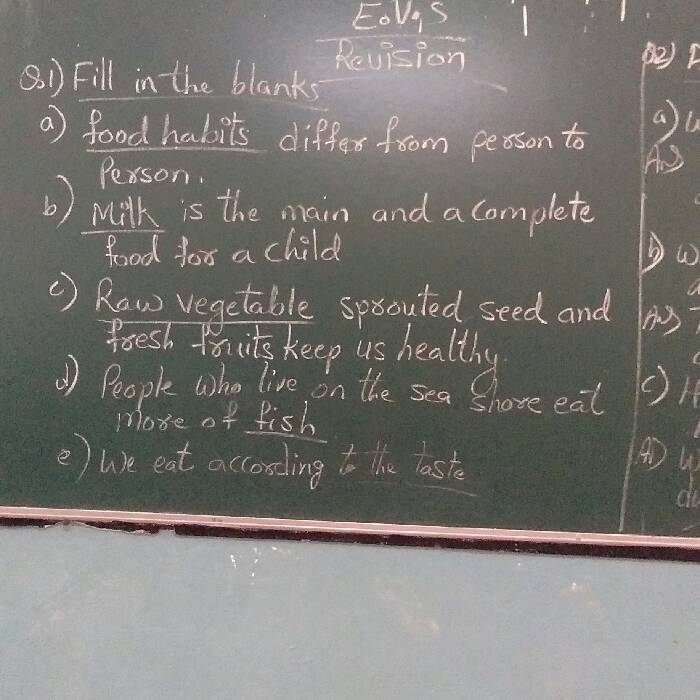 E.V.S
Revision
Q1) Fill in the blanks
a) food habits differ from person to
Person.
b) Milk is the main and a complete
food for a child
c) Raw vegetable sprouted seed and
fresh fruits keep us healthy.
d) People who live on the sea shore eat
more of fish
e) We eat according to the taste
Q2)
a)
Ans
b)
Ans
c)